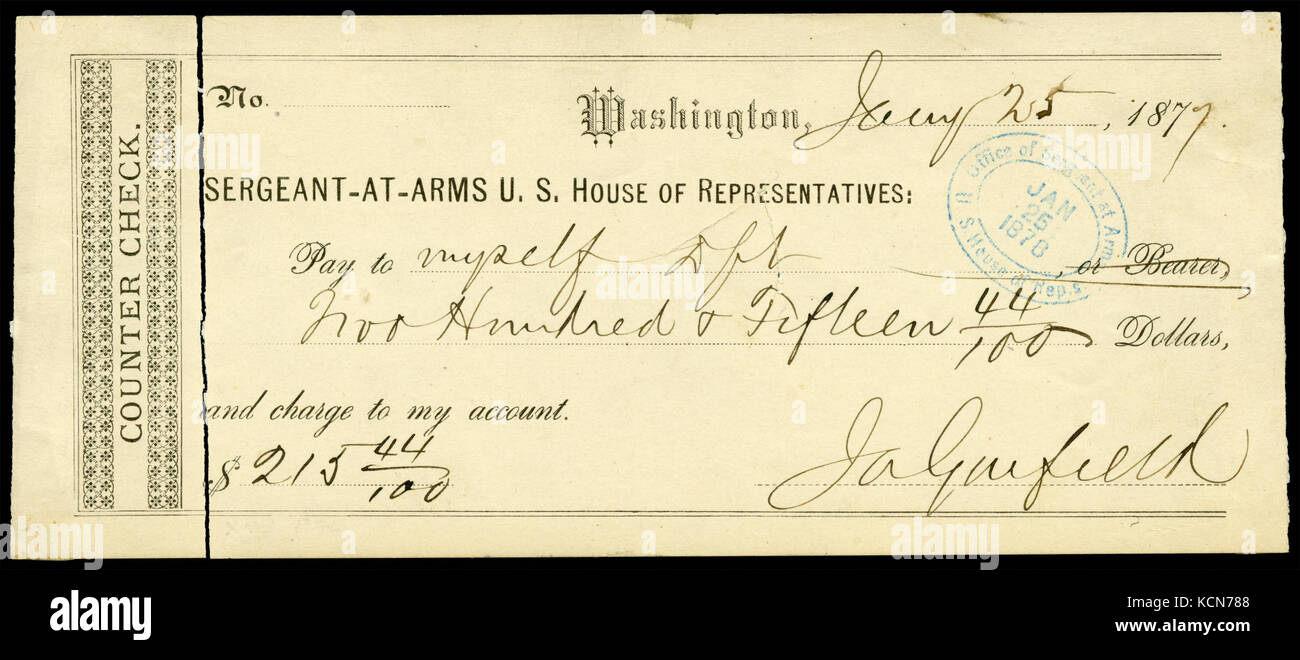 COUNTER CHECK.
No. Washington, Jany 25, 1877.
SERGEANT-AT-ARMS U. S. HOUSE OF REPRESENTATIVES:
Office of Sergeant at Arms U S House of Reps
JAN
25
1878
Pay to myself Dft, or Bearer,
Two Hundred & Fifteen 44/100 Dollars,
and charge to my account.
$ 215 44/100
Ja Garfield
alamy
Image ID: KCN788
www.alamy.com